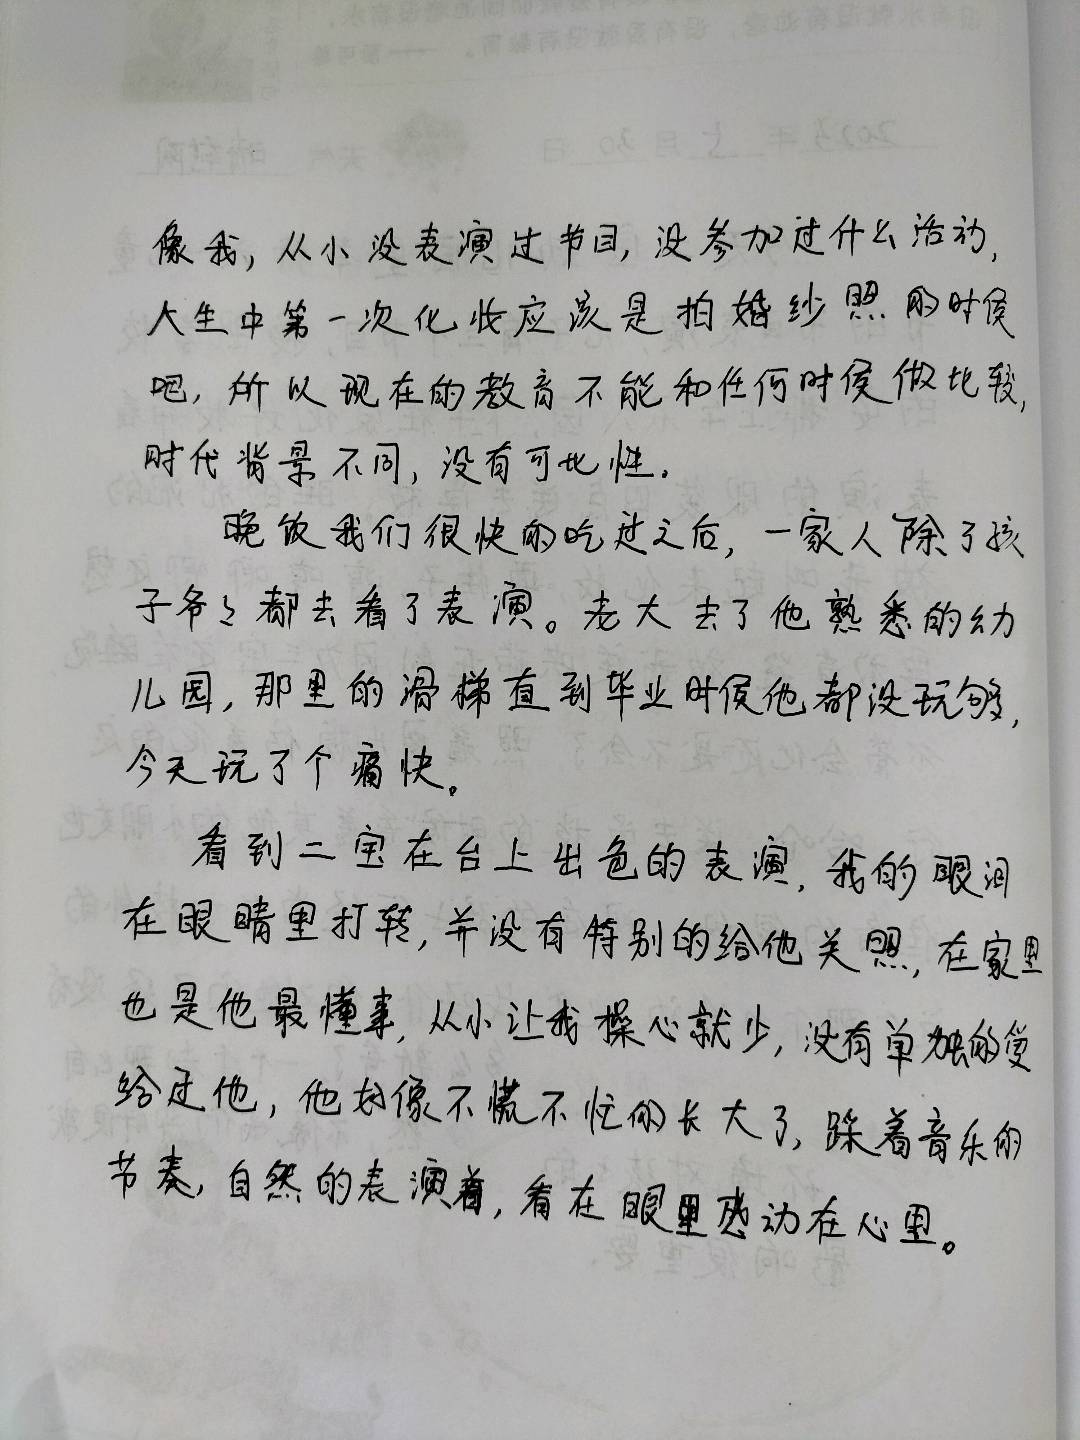 像我，从小没表演过节目，没参加过什么活动，
人生中第一次化妆应该是拍婚纱照的时侯
吧，所以现在的教育不能和任何时侯做比较，
时代背景不同，没有可比性.
晚饭我们很快的吃过之后，一家人除了孩
子爷々都去看了表演。老大去了他熟悉的幼
儿园，那里的滑梯直到毕业时侯他都没玩够，
今天玩了个痛快。
看到二宝在台上出色的表演，我的眼泪
在眼睛里打转，并没有特别的给他关照，在家里
也是他最懂事，从小让我操心就少，没有单独的爱
给过他，他好像不慌不忙的长大了，踩着音乐的
节奏，自然的表演着，看在眼里感动在心里。